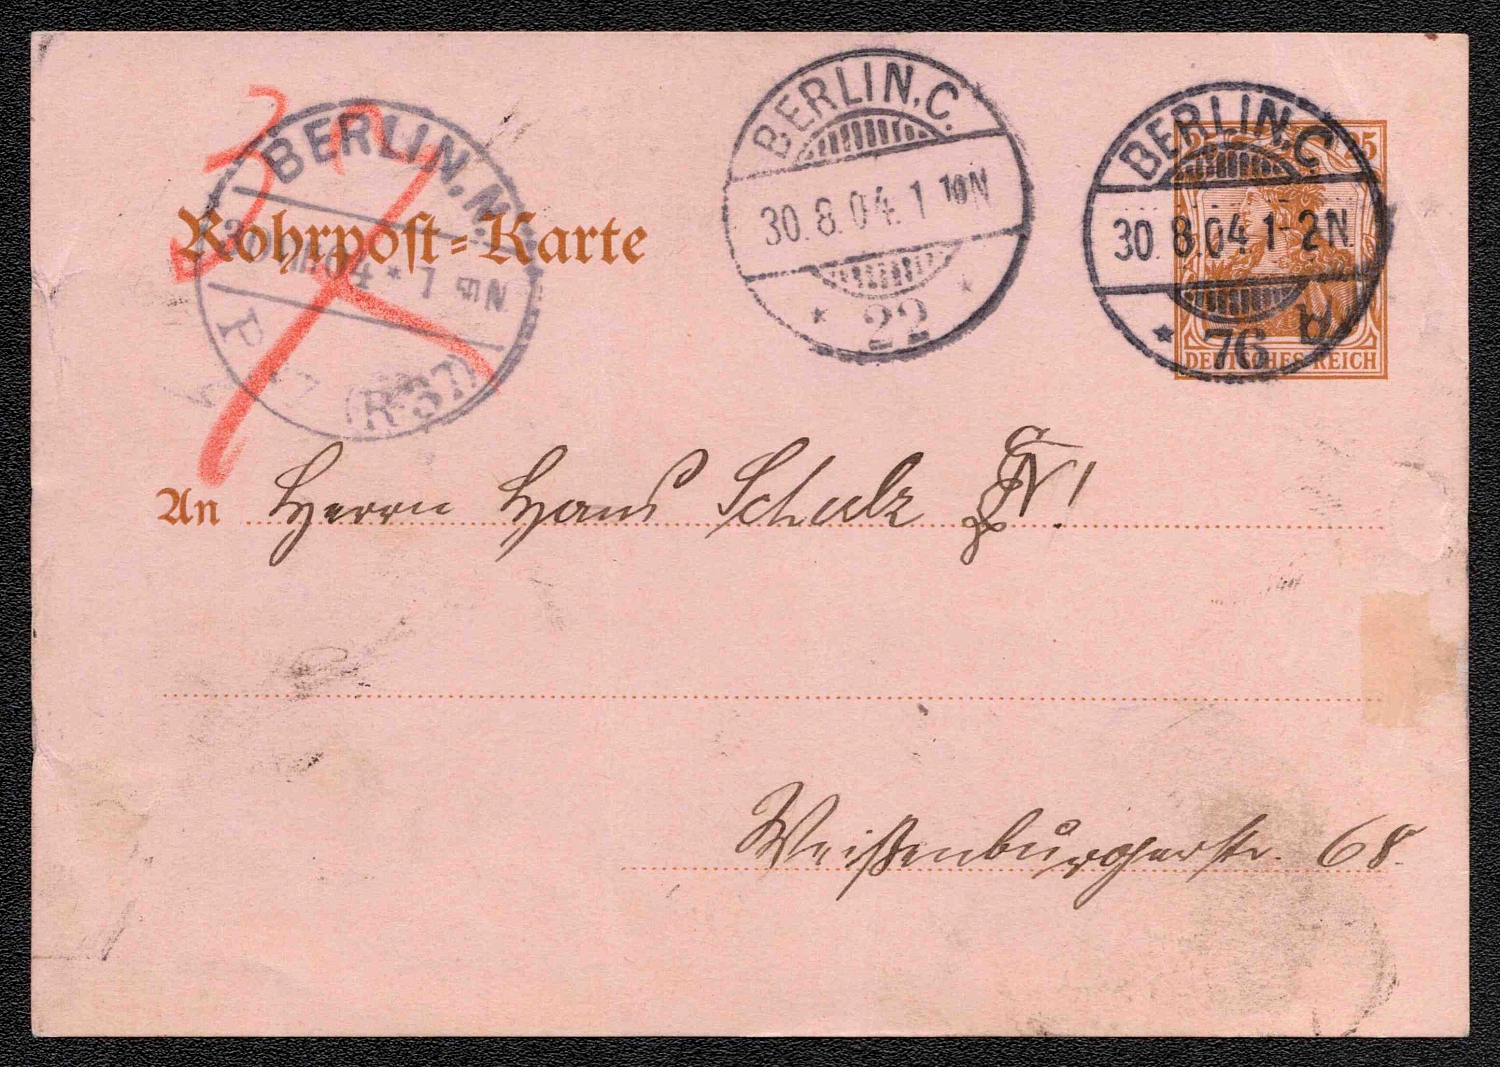 BERLIN.N.
04 * 1 50 N
P
(R 37)
37
Rohrpost-Karte
BERLIN.C.
30.8.04. 1 10 N
* 22 *
BERLIN.C
30 8.04 1-2N.
* 76
25
DEUTSCHES REICH
An Herrn Hans Schulz
Weißenburgerstr. 68.